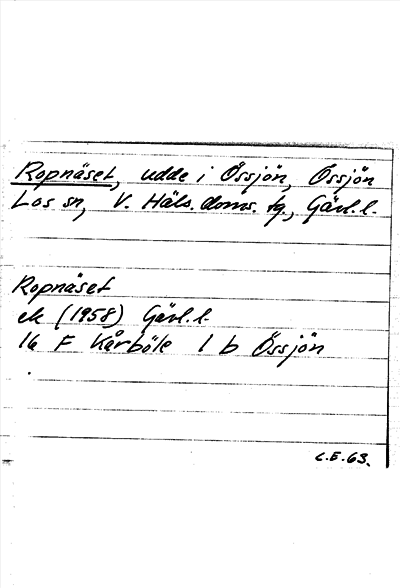 Ropnäset, udde i Össjön, Össjön
Los sn, V. Häls. doms. tg., Gävl. l.
Ropnäset
ek (1958) Gävl. l.
16 F Kårböle 1 b Össjön
C.E. 63.